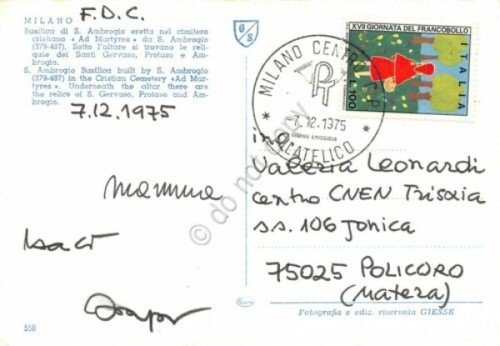 MILANO
F.D.C.
Basilica di S. Ambrogio eretta nel cimitero
cristiano « Ad Martyres » da S. Ambrogio
(379-487). Sotto l'altare si trovano le reli-
quie dei Santi Gervaso, Protaso e Am-
brogio.
S. Ambrogio Basilica built by S. Ambrogio
(379-487) in the Cristian Cemetery «Ad Mar-
tyres ». Underneath the altar there are
the relics of S. Gervaso, Protaso and Am-
brogio.
7.12.1975
G S
MILANO CENTRO
-7.12.1975
FILATELICO
XVII GIORNATA DEL FRANCOBOLLO
ITALIA
L.100
mamma
Valeria Leonardi
centro CNEN Trisaia
ss. 106 Jonica
75025 POLICORO
(Matera)
558
Fotografia e ediz. riservata GIESSE
do not copy